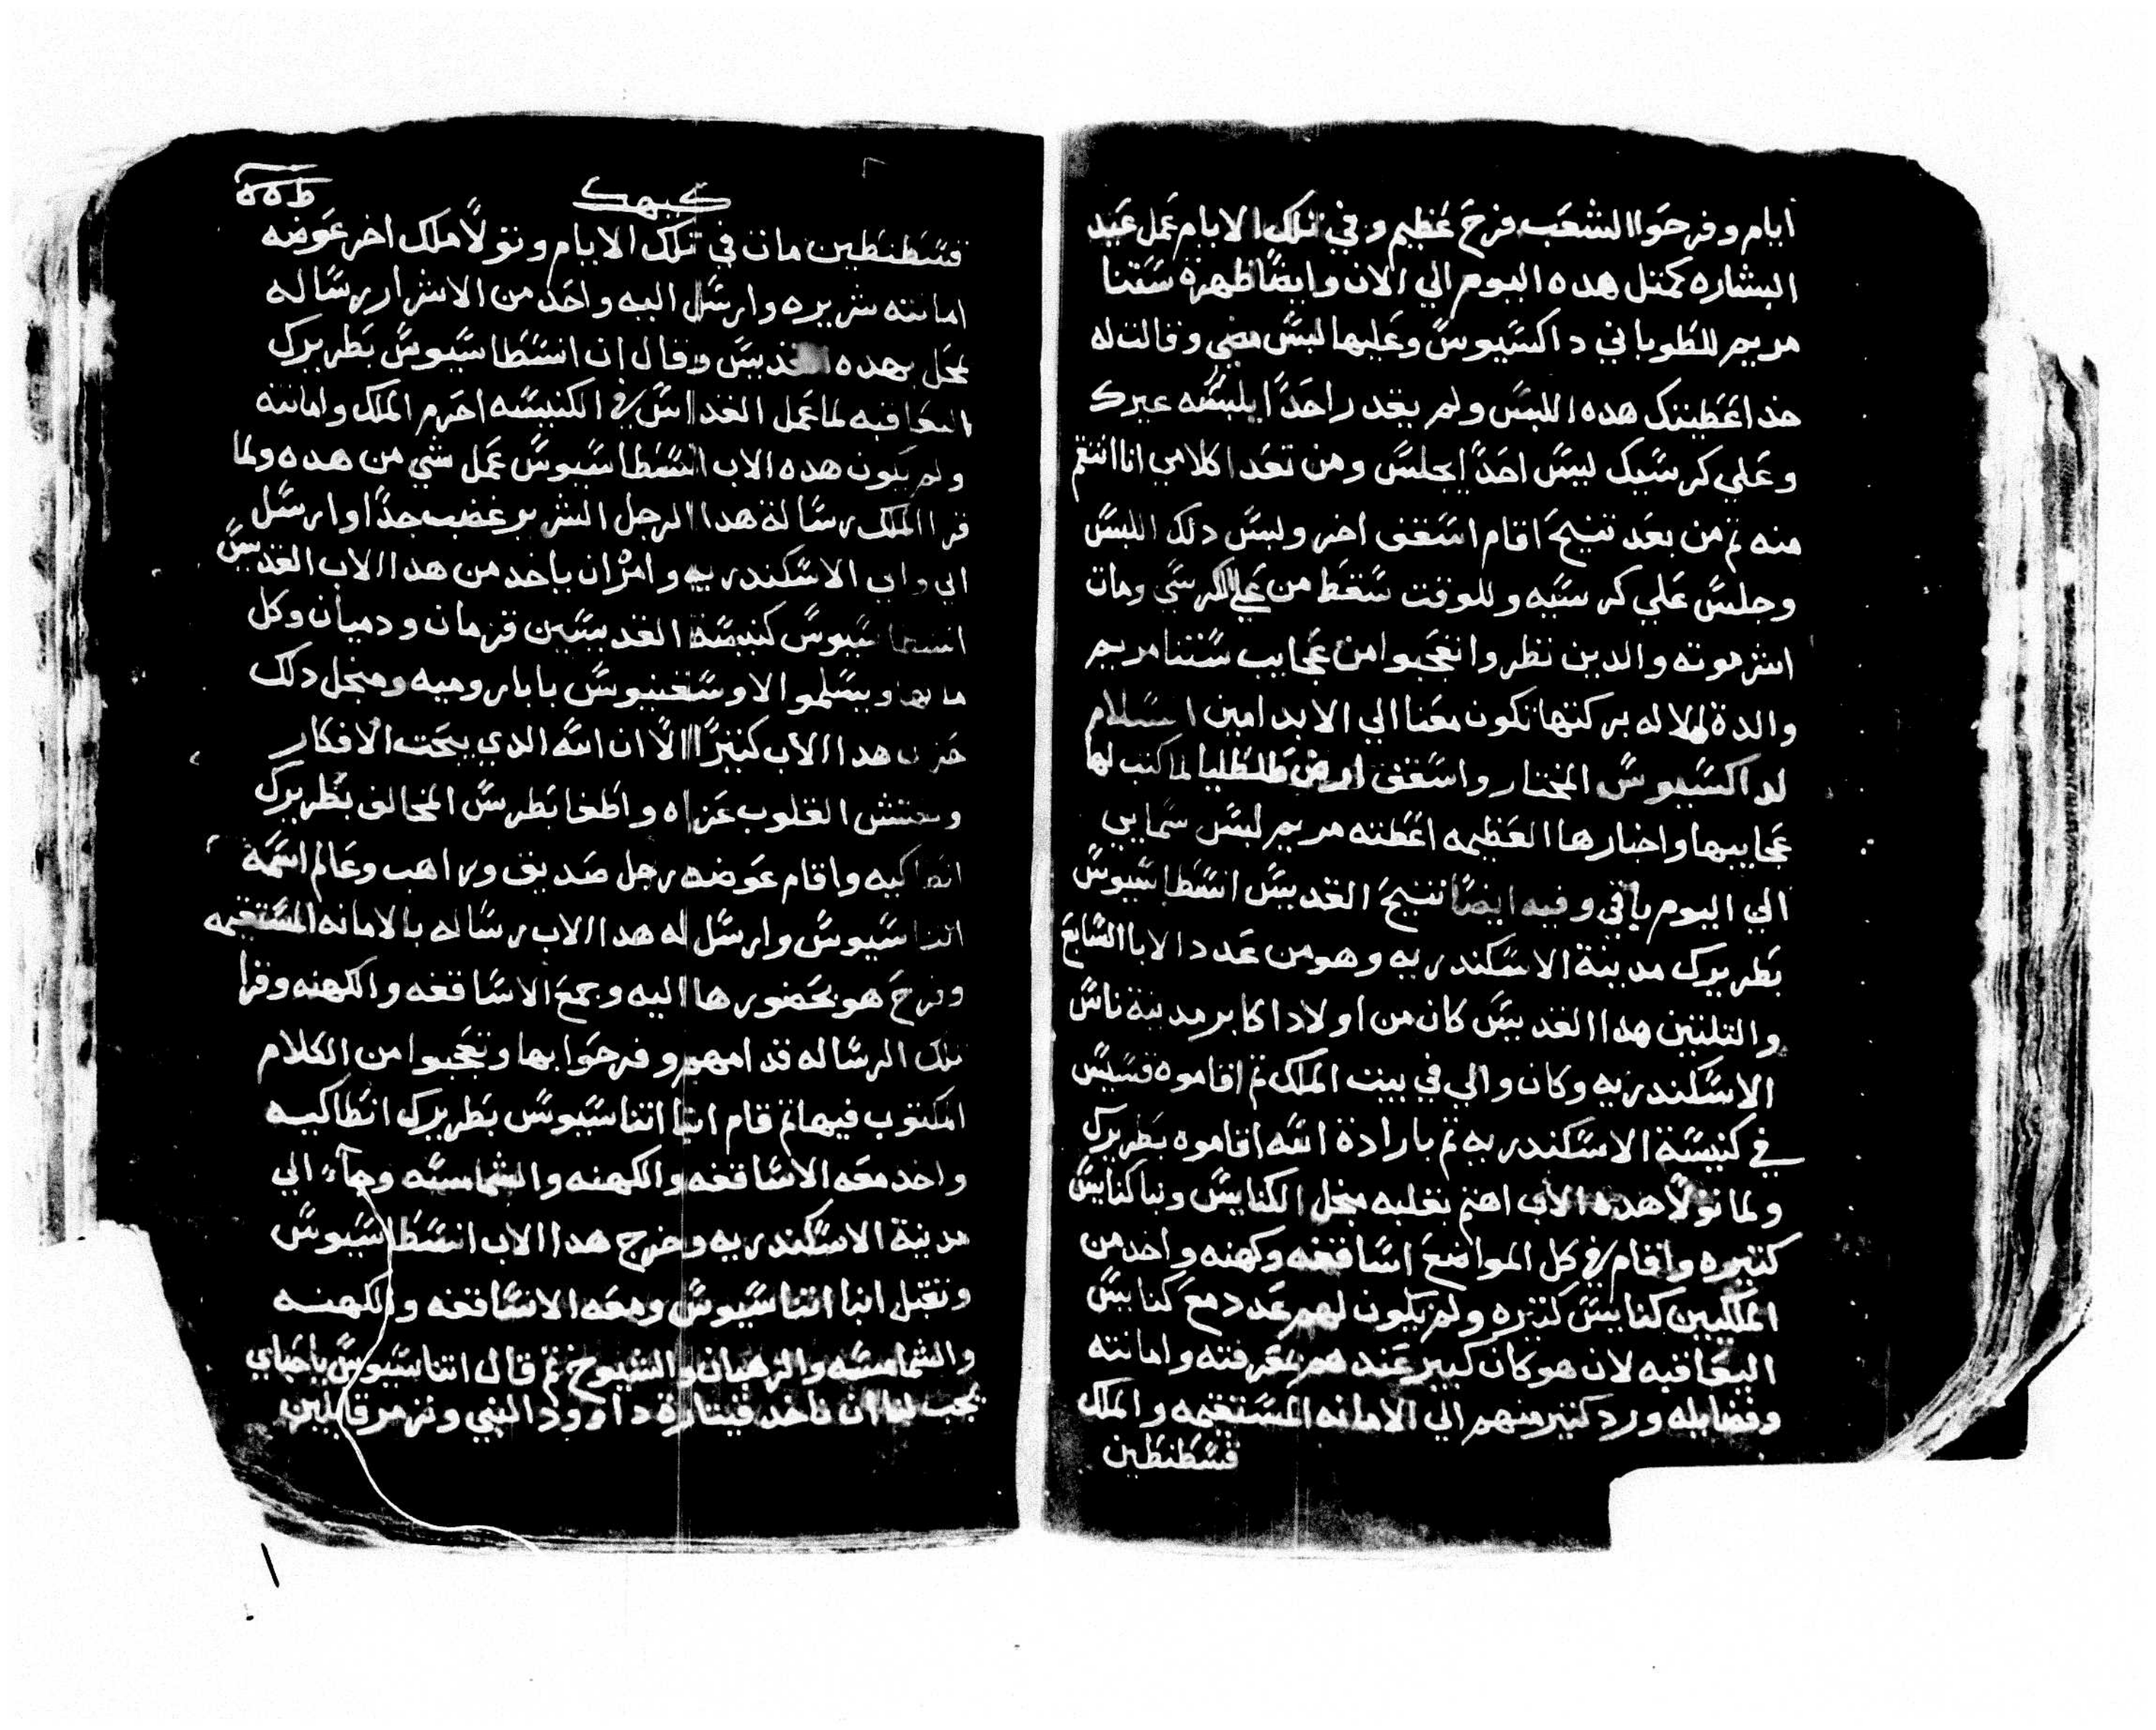 ايام وفرحوا الشعب فرح عظيم وفي تلك الايام عمل عيد
البشاره كمتل هده اليوم الي الان وايضا ظهرة ستنا
مريم للطوباني داكسيوس وعليها لبس مضي وقالت له
خد اعطيتك هده اللبس ولم يقدر احدا يلبسه غيرك
وعلي كرسيك ليس احدا يجلس ومن تعدا كلامي انا انتقم
منه تم من بعد تنيح اقام اسقف اخر ولبس دلك اللبس
وجلس علي كرسيه وللوقت سقط من علي الكرسي ومات
اشر موته والدين نظروا تعجبوا من عجايب ستنا مريم
والدة الاله بركتها تكون معنا الي الابد امين السلام
لداكسيوس المختار واسقف ارض طلطليا لما كتب لها
عجايبها واخبارها العظيمه اعطته مريم لبس سمايي
الي اليوم باقي وفيه ايضا تنيح القديس انسطاسيوس
بطريرك مدينة الاسكندريه وهو من عدد الابا السابع
والتلتين هدا القديس كان من اولاد اكابر مدينة ناس
الاسكندريه وكان والي في بيت الملك تم اقاموه قسيس
في كنيسة الاسكندريه تم بارادة الله اقاموه بطريرك
ولما تولا هده الاب اهتم بقلبه مجل الكنايس وبنا كنايس
كتيره واقام في كل المواضع اساقفه وكهنه واخد من
الملكيين كنايس كتيره ولم يكون لهم عدد مع كنايس
اليعاقبه لان هو كان كبير عندهم بمعرفته وامانته
وفضايله ورد كتير منهم الي الامانه المستقيمه والملك
قسطنطين
كيهك
قسطنطين مات في تلك الايام وتولا ملك اخر عوضه
امانته شريره وارسل اليه واحد من الاشرار رساله
لمجل هده القديس وقال ان انسطاسيوس بطريرك
اليعاقبه لما عمل القداس في الكنيسه احرم الملك وامانته
ولم يكون هده الاب انسطاسيوس عمل شي من هده ولما
قرا الملك رسالة هدا الرجل الشرير غضب جدا وارسل
الي والي الاسكندريه وامره ان ياخد من هدا الاب القديس
انسطاسيوس كنيسة القديسين قزمان ودميان وكل
مالها ويسلموا الاوسغنيوس بابا روميه ومنجل دلك
حزن هدا الاب كتيرا الا ان الله الدي يبحت الافكار
ويفتش القلوب عزاه واطغا بطرس المخالف بطريرك
انطاكيه واقام عوضه رجل صديق وراهب وعالم اسمه
اتناسيوس وارسل له هدا الاب رساله بالامانه المستقيمه
وفرح هو بحضورها اليه وجمع الاساقفه والكهنه وقرا
تلك الرساله قدامهم وفرحوا بها وتعجبوا من الكلام
المكتوب فيها تم قام انبا اتناسيوس بطريرك انطاكيه
واخد معه الاساقفه والكهنه والشمامسه وجاء الي
مدينة الاسكندريه وخرج هدا الاب انسطاسيوس
وتقبل انبا اتناسيوس ومعه الاساقفه والكهنه
والشمامسه والرهبان والشيوخ تم قال اتناسيوس ياحباي
يجب لنا ان ناخد قيتارة داوود النبي ونزمر قايلين